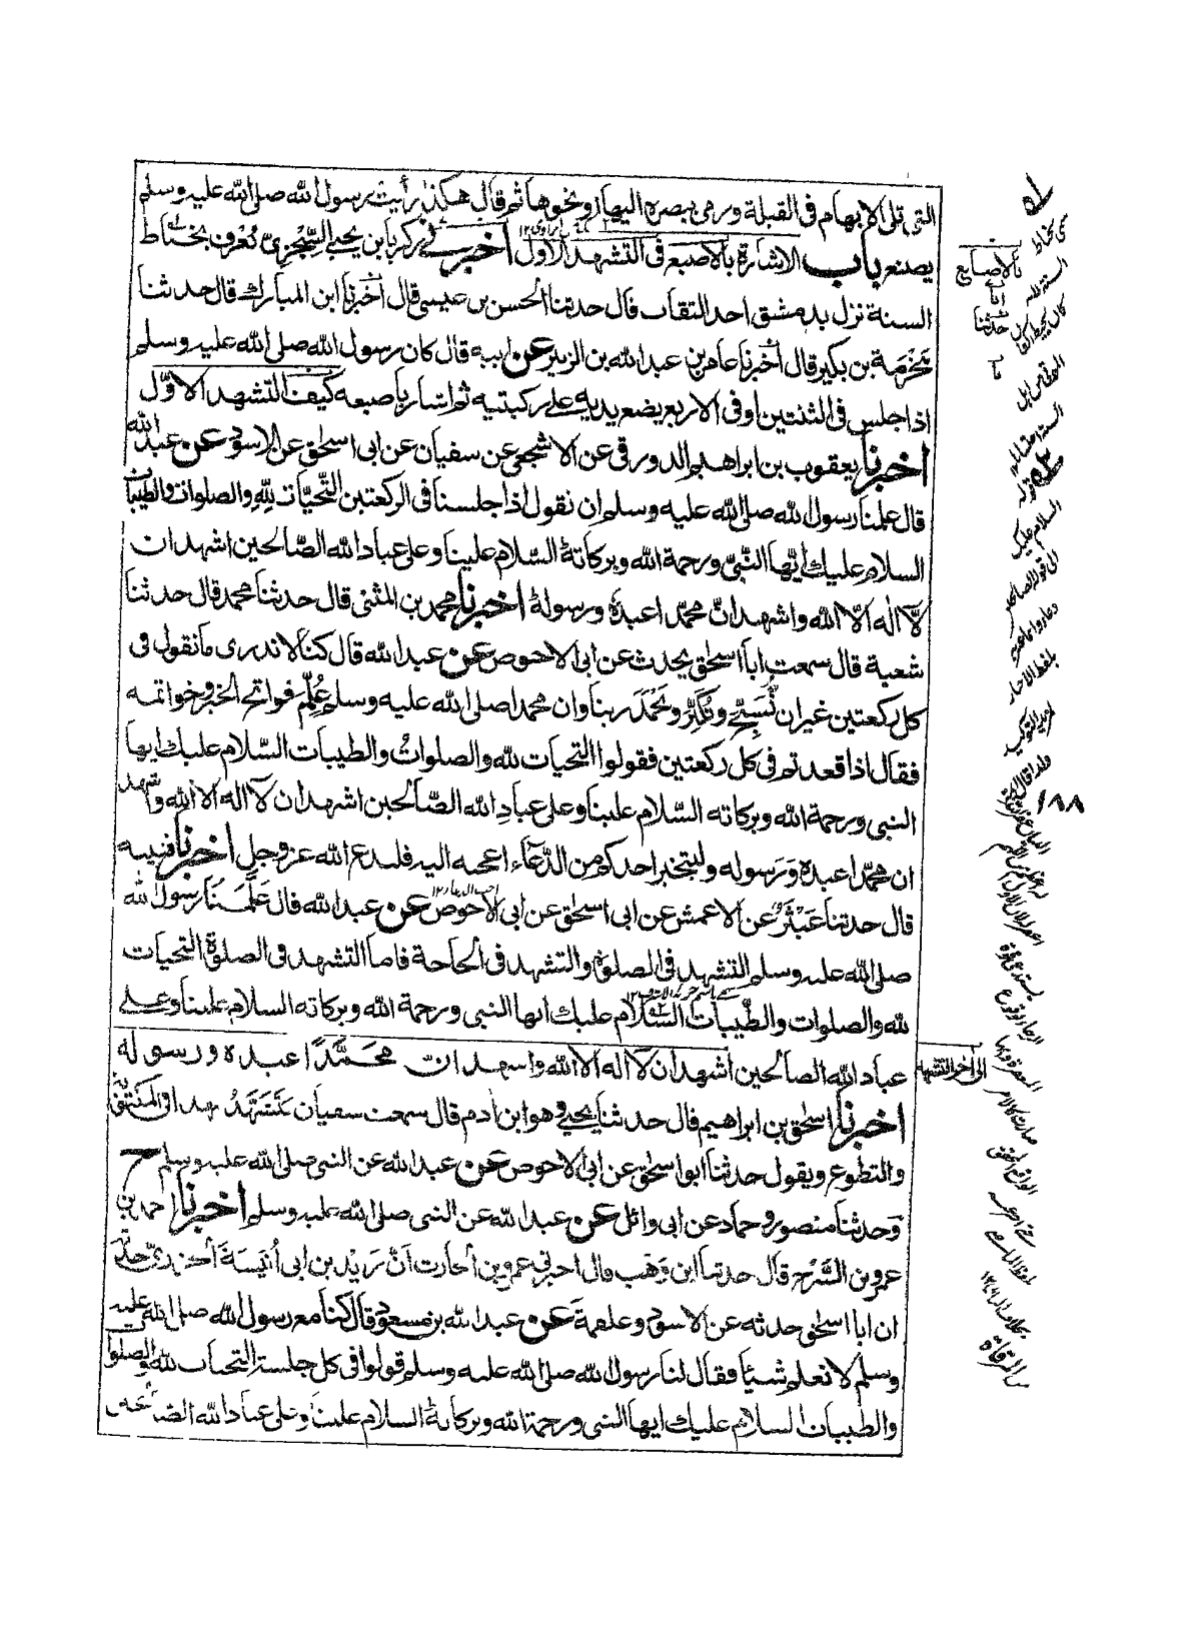 التى تلى الابهام فى القبلة ورمى ببصره اليها او نحوها ثم قال هكذا رأيت رسول الله صلى الله عليه وسلم
يصنع باب الاشارة بالاصبع فى التشهد الاول اخبرنى زكريا بن يحيى السجزى تعرف بخياط
السنة نزل بدمشق احد الثقات قال حدثنا الحسن بن عيسى قال اخبرنا ابن المبارك قال حدثنا
مخرمة بن بكير قال اخبرنا عامر بن عبد الله بن الزبير عن ابيه قال كان رسول الله صلى الله عليه وسلم
اذا جلس فى الثنتين او فى الاربع يضع يديه على ركبتيه ثم اشار باصبعه كيف التشهد الاول
اخبرنا يعقوب بن ابراهيم الدورقى عن الاشجعى عن سفيان عن ابى اسحٰق عن الاسود عن عبد الله
قال علمنا رسول الله صلى الله عليه وسلم ان نقول اذا جلسنا فى الركعتين التحيّات لِلّٰهِ والصلوات والطيبات
السلام عليك ايّها النّبىّ ورحمة الله وبركاتهٗ السّلام علينا وعلى عباد الله الصّالحين اشهد ان
لّا اله الّا الله واشهد انّ محمّدا عبدهٗ ورسولهٗ اخبرنا محمد بن المثنى قال حدثنا محمد قال حدثنا
شعبة قال سمعت ابا اسحٰق يحدث عن ابى الاحوص عن عبد الله قال كنا لا ندرى ما نقول فى
كل ركعتين غير ان نُسَبِّح ونُكَبِّر ونَحْمَدَ ربنا وان محمدا صلى الله عليه وسلم عُلِّمَ فواتح الخير وخواتمه
فقال اذا قعدتم فى كل ركعتين فقولوا التحيات لله والصلواتُ والطيبات السّلام عليك ايها
النبى ورحمة الله وبركاته السّلام علينا وعلى عبادِ الله الصّالحين اشهد ان لآ اله الا الله واشهد
ان محمّدا عبده وَرَسوله وليتخير احدكم من الدّعَاء اعجبه اليه فليدع الله عز وجل اخبرنا قتيبه
قال حدثنا عَبْثَرٌ عن الاعمش عن ابى اسحٰق عن ابى الاحوص عن عبد الله قال عَلَّمَنَا رسول الله
صلى الله عليه وسلم التشهد فى الصلوٰة والتشهد فى الحاجة فاما التشهد فى الصلوٰة التحيات
لله والصلوات والطّيبات السّلام عليك ايها النبى ورحمة الله وبركاته السلام علينا وعلى
عباد الله الصالحين اشهد ان لا اله الا الله واشهد ان محمَّدًا عبده ورسوله
الى آخر التشهد
اخبرنا اسحٰق بن ابراهيم قال حدثنا يحيى وهو ابن ادم قال سمعت سفيان يَتَشَهَّدُ بهذا فى المكتوبة
والتطوع ويقول حدثنا ابو اسحٰق عن ابى الاحوص عن عبد الله عن النبى صلى الله عليه وسلم ح
وَحدثنا منصور وحماد عن ابى وائل عن عبد الله عن النبى صلى الله عليه وسلم اخبرنا احمد بن
عمرو بن السَّرْح قال حدثنا ابن وَهْب قال اخبرنى عمرو بن الحارث اَنَّ زَيْد بن ابى اُنَيْسَةَ حدّثه
ان ابا اسحٰق حدثه عن الاسود وعلقمة عن عبد الله بن مسعود قال كنا مع رسول الله صلى الله عليه
وسلم لا نعلم شيئًا فقال لنا رسول الله صلى الله عليه وسلم قولوا فى كل جلسة التحيات لله والصلوات
والطيبات السلام عليك ايها النبى ورحمة الله وبركاتهٗ السلام علينا وعلى عباد الله
بالاصابع
حدثنا
١٨٨